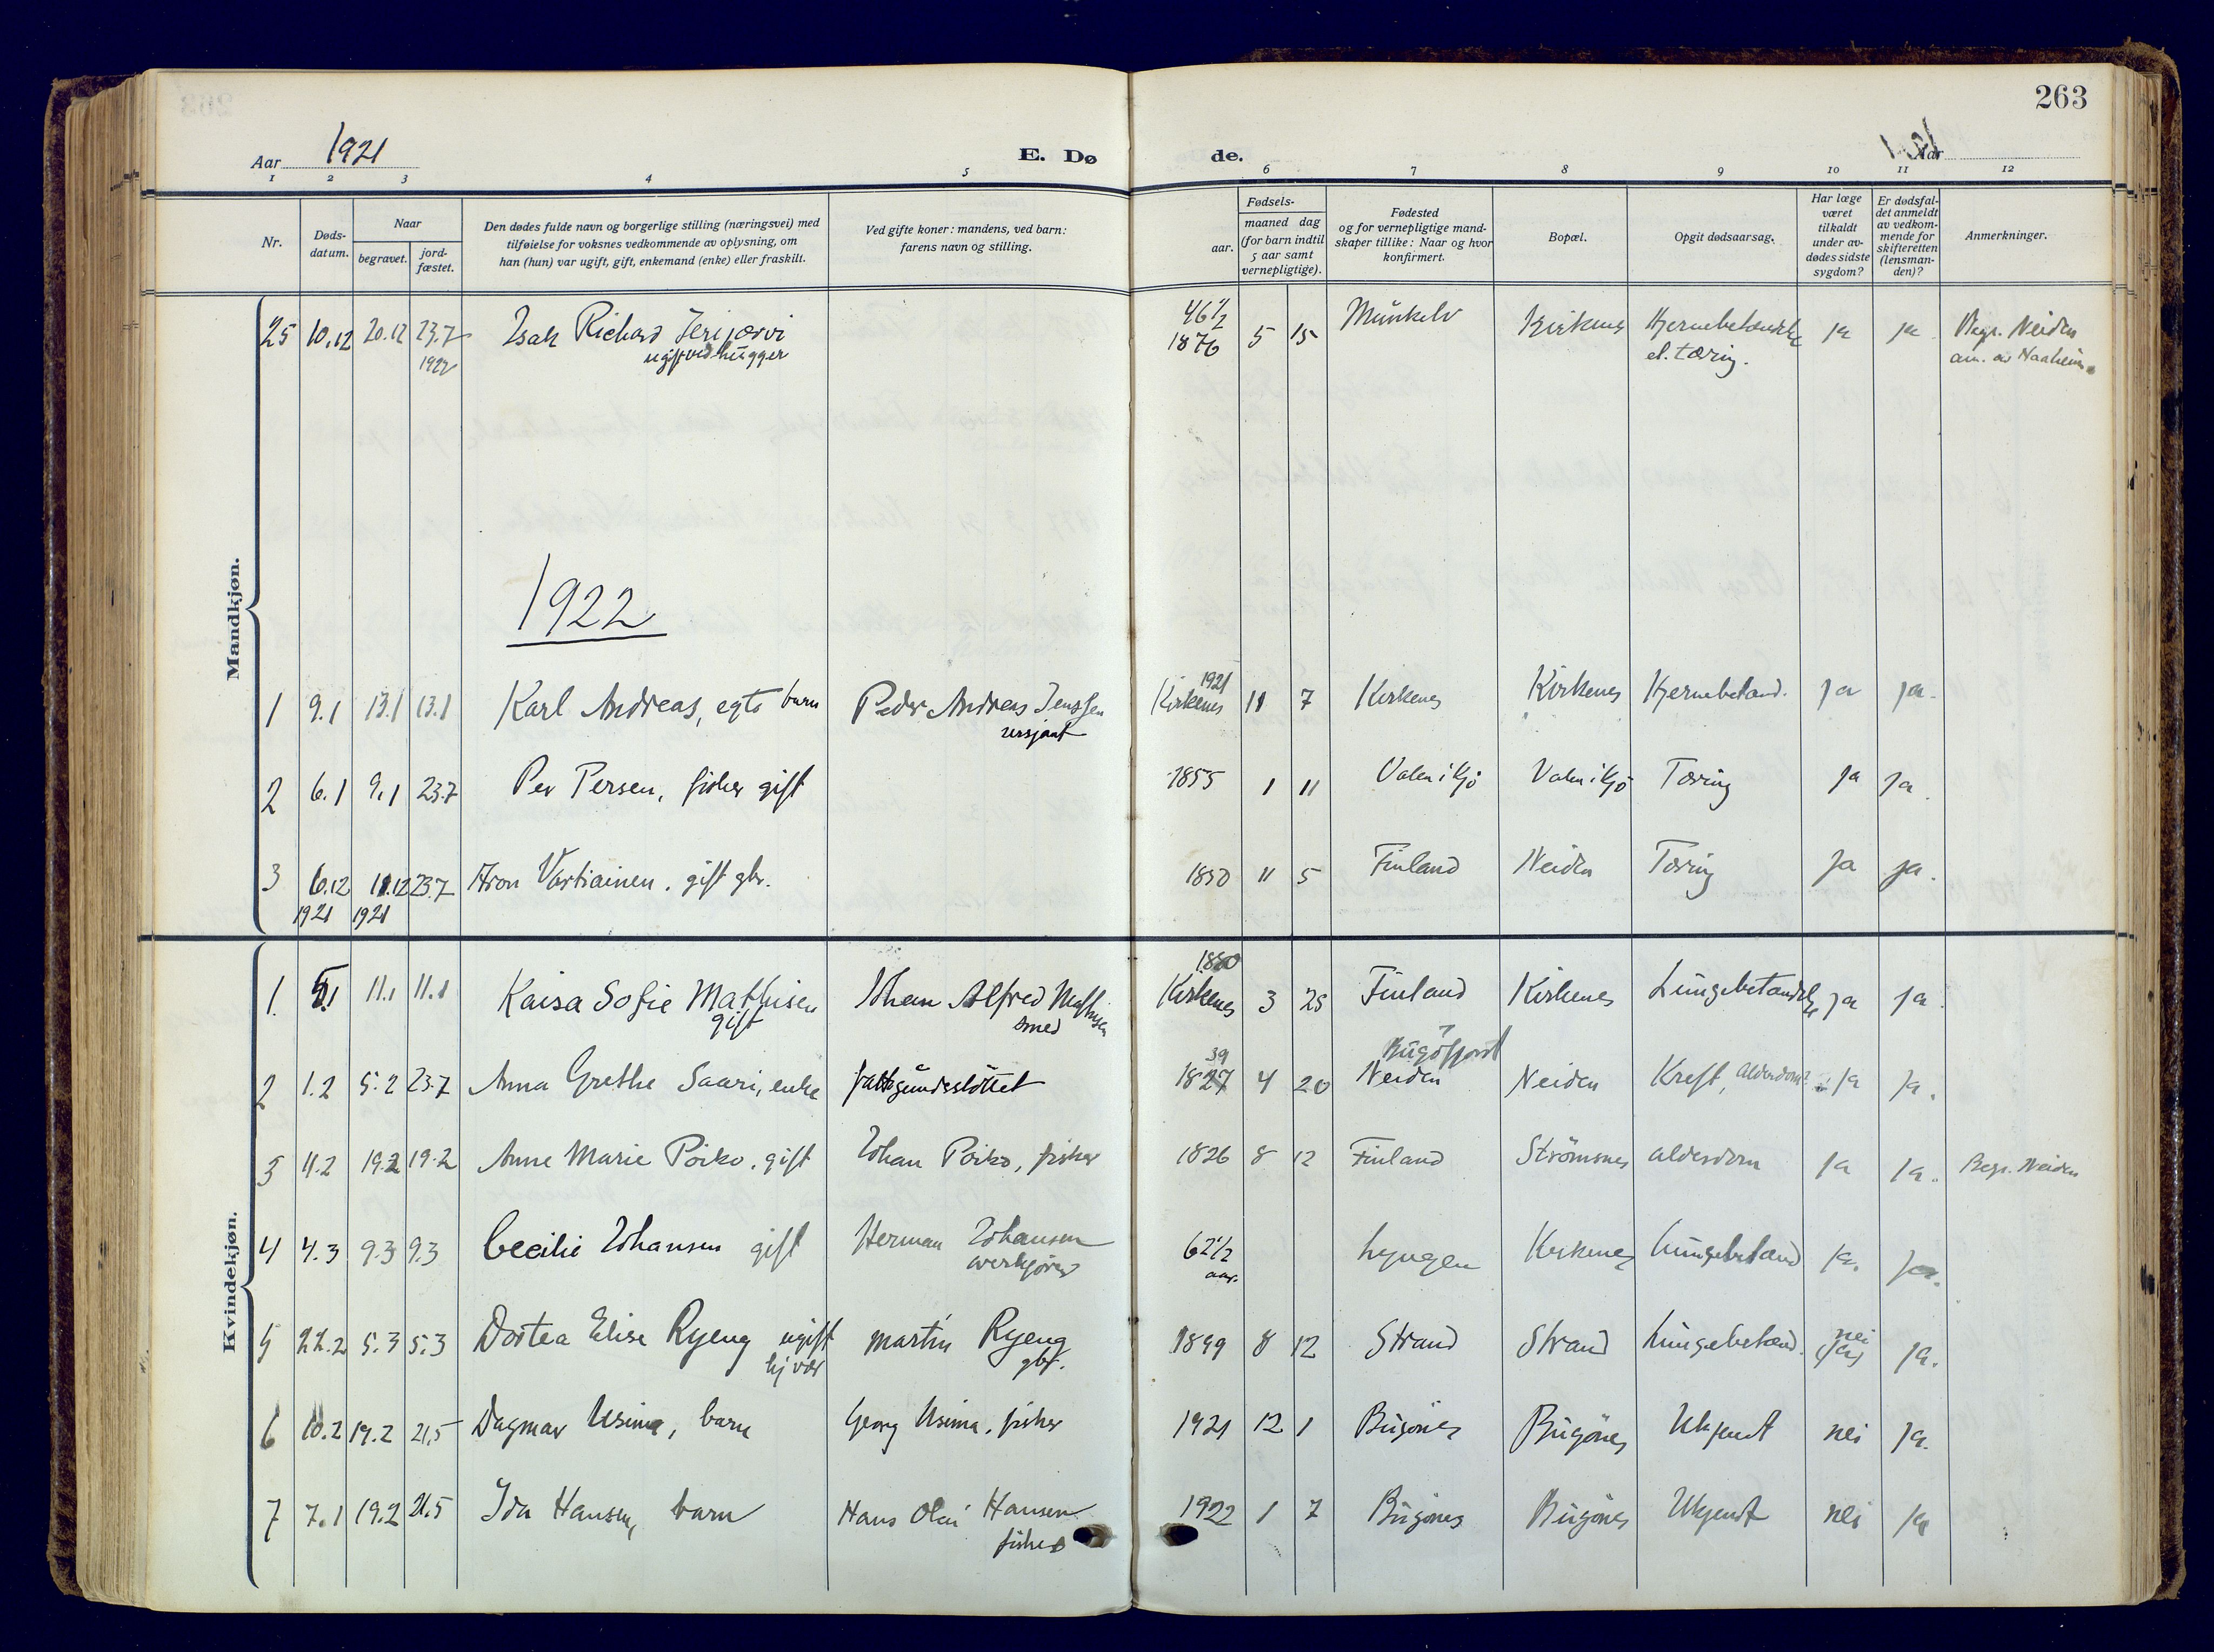 263
Aar 1921
E. Dø
de.
Aar 1921
1 2 3 4 5 6 7 8 9 10 11 12
Nr.
Døds-
datum.
Naar
begravet.
jord-
fæstet.
Den dødes fulde navn og borgerlige stilling (næringsvei) med
tilføielse for voksnes vedkommende av oplysning, om
han (hun) var ugift, gift, enkemand (enke) eller fraskilt.
Ved gifte koner: mandens, ved barn:
farens navn og stilling.
Fødsels-
aar.
maaned dag
(for barn indtil
5 aar samt
vernepligtige).
Fødested
og for vernepligtige mand-
skaper tillike: Naar og hvor
konfirmert.
Bopæl.
Opgit dødsaarsag.
Har læge
været
tilkaldt
under av-
dødes sidste
sygdom?
Er dødsfal-
det anmeldt
av vedkom-
mende for
skifteretten
(lensman-
den)?
Anmerkninger.
Mandkjøn.
25 10.12 20.12 23.7 1922 Isak Richard Jerijærvi
ugift vedhugger
46½
1876 5 15 Munkelv Kirkenes Hjernebetændelse
el. tæring. ja ja. Begr. Neiden
1922
1 9.1 13.1 13.1 Karl Andreas, egte barn Peder Andreas Jenssen
Kirkenes 1921 11 7 Kirkenes Kirkenes Hjernebetænd. ja ja.
2 6.1 9.1 23.7 Per Persen, fisker gift 1855 1 11 Valen i Kjø Valen i Kjø Tæring ja ja.
3 6.12 1921 11.12 1921 23.7 Aron Vartiainen, gift gbr. 1850 11 5 Finland Neiden Tæring ja ja.
Kvindekjøn.
1 5.1 11.1 11.1 Kaisa Sofie Mathisen
gift Johan Alfred Mathisen
smed 1880 Kirkenes 3 25 Finland Kirkenes Lungebetændelse ja ja
2 1.2 5.2 23.7 Anna Grethe Saari, enke fattigunderstöttet 1827 39 4 20 Neiden Bugöfjord Neiden Kreft, alderdom? ja ja.
3 11.2 19.2 19.2 Anne Marie Poiko, gift Johan Poiko, fisker 1826 8 12 Finland Strömsnes alderdom ja ja. Begr. Neiden
4 4.3 9.3 9.3 Cecilie Johansen gift Herman Johansen
62½
aar. Lyngen Kirkenes Lungebetænd ja. ja.
5 22.2 5.3 5.3 Dortea Elise Ryeng ugift
Martin Ryeng
gbr. 1899 8 12 Strand Strand Lungebetænd. nei
(ja) ja.
6 10.2 19.2 21.5 Dagmar Usima, barn Georg Usima, fisker 1921 12 1 Bugönes Bugönes Ukjendt nei ja.
7 7.1 19.2 21.5 Ida Hansen, barn Hans Olai Hansen
fisker 1922 1 7 Bugönes Bugönes Ukjendt nei ja